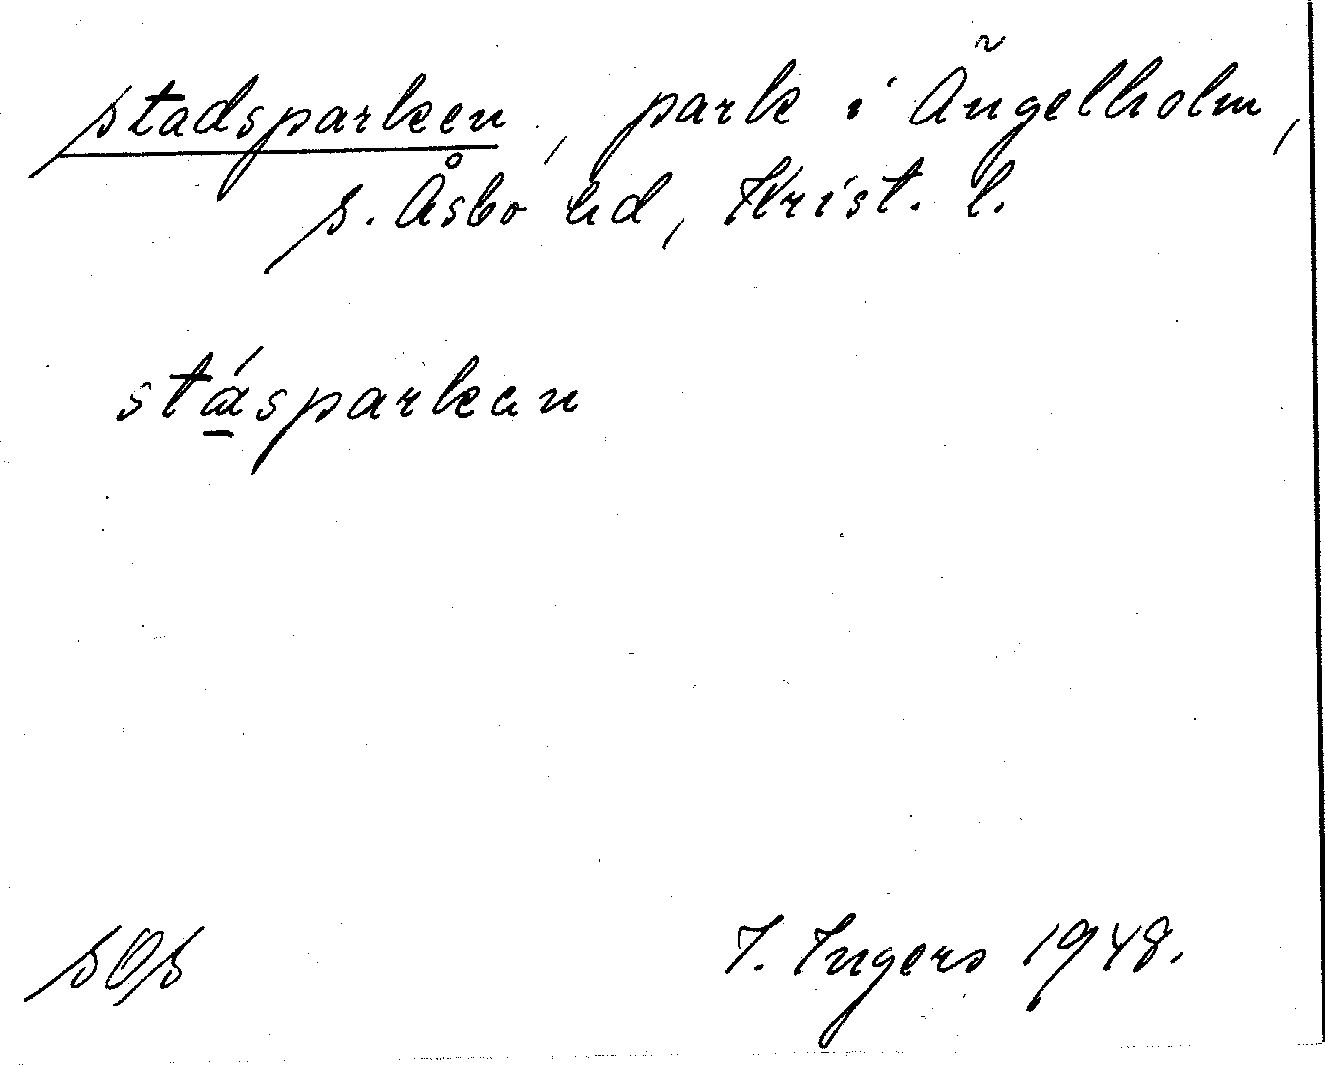 stadsparken, park i Ängelholm,
S. Åsbo hd, Krist. l.
stásparkan
SOS
I. Ingers 1948.